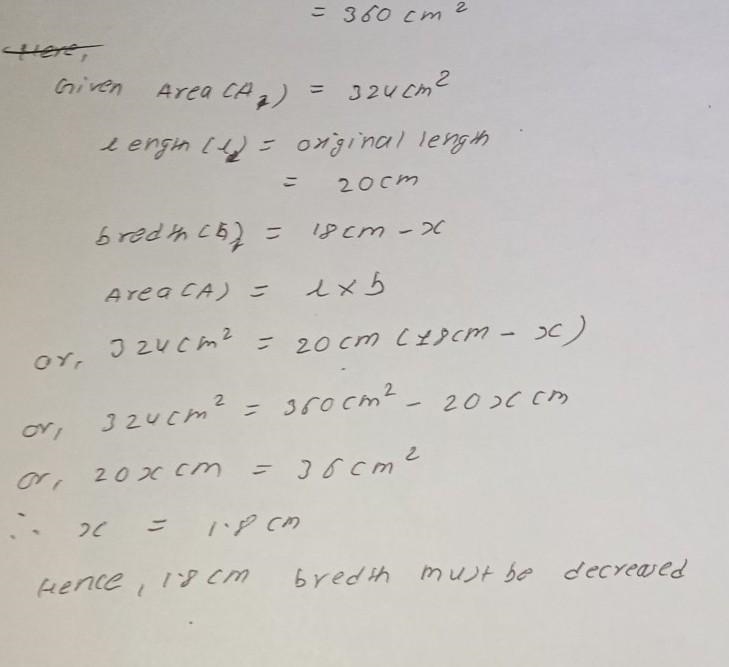 = 360 cm²
Here,
Given Area (A₂) = 324 cm²
length (l₂) = original length
= 20 cm
bredth (b₂) = 18 cm - x
Area (A) = l × b
or, 324 cm² = 20 cm (18 cm - x)
or, 324 cm² = 360 cm² - 20x cm
or, 20x cm = 36 cm²
∴ x = 1.8 cm
Hence, 1.8 cm bredth must be decreased